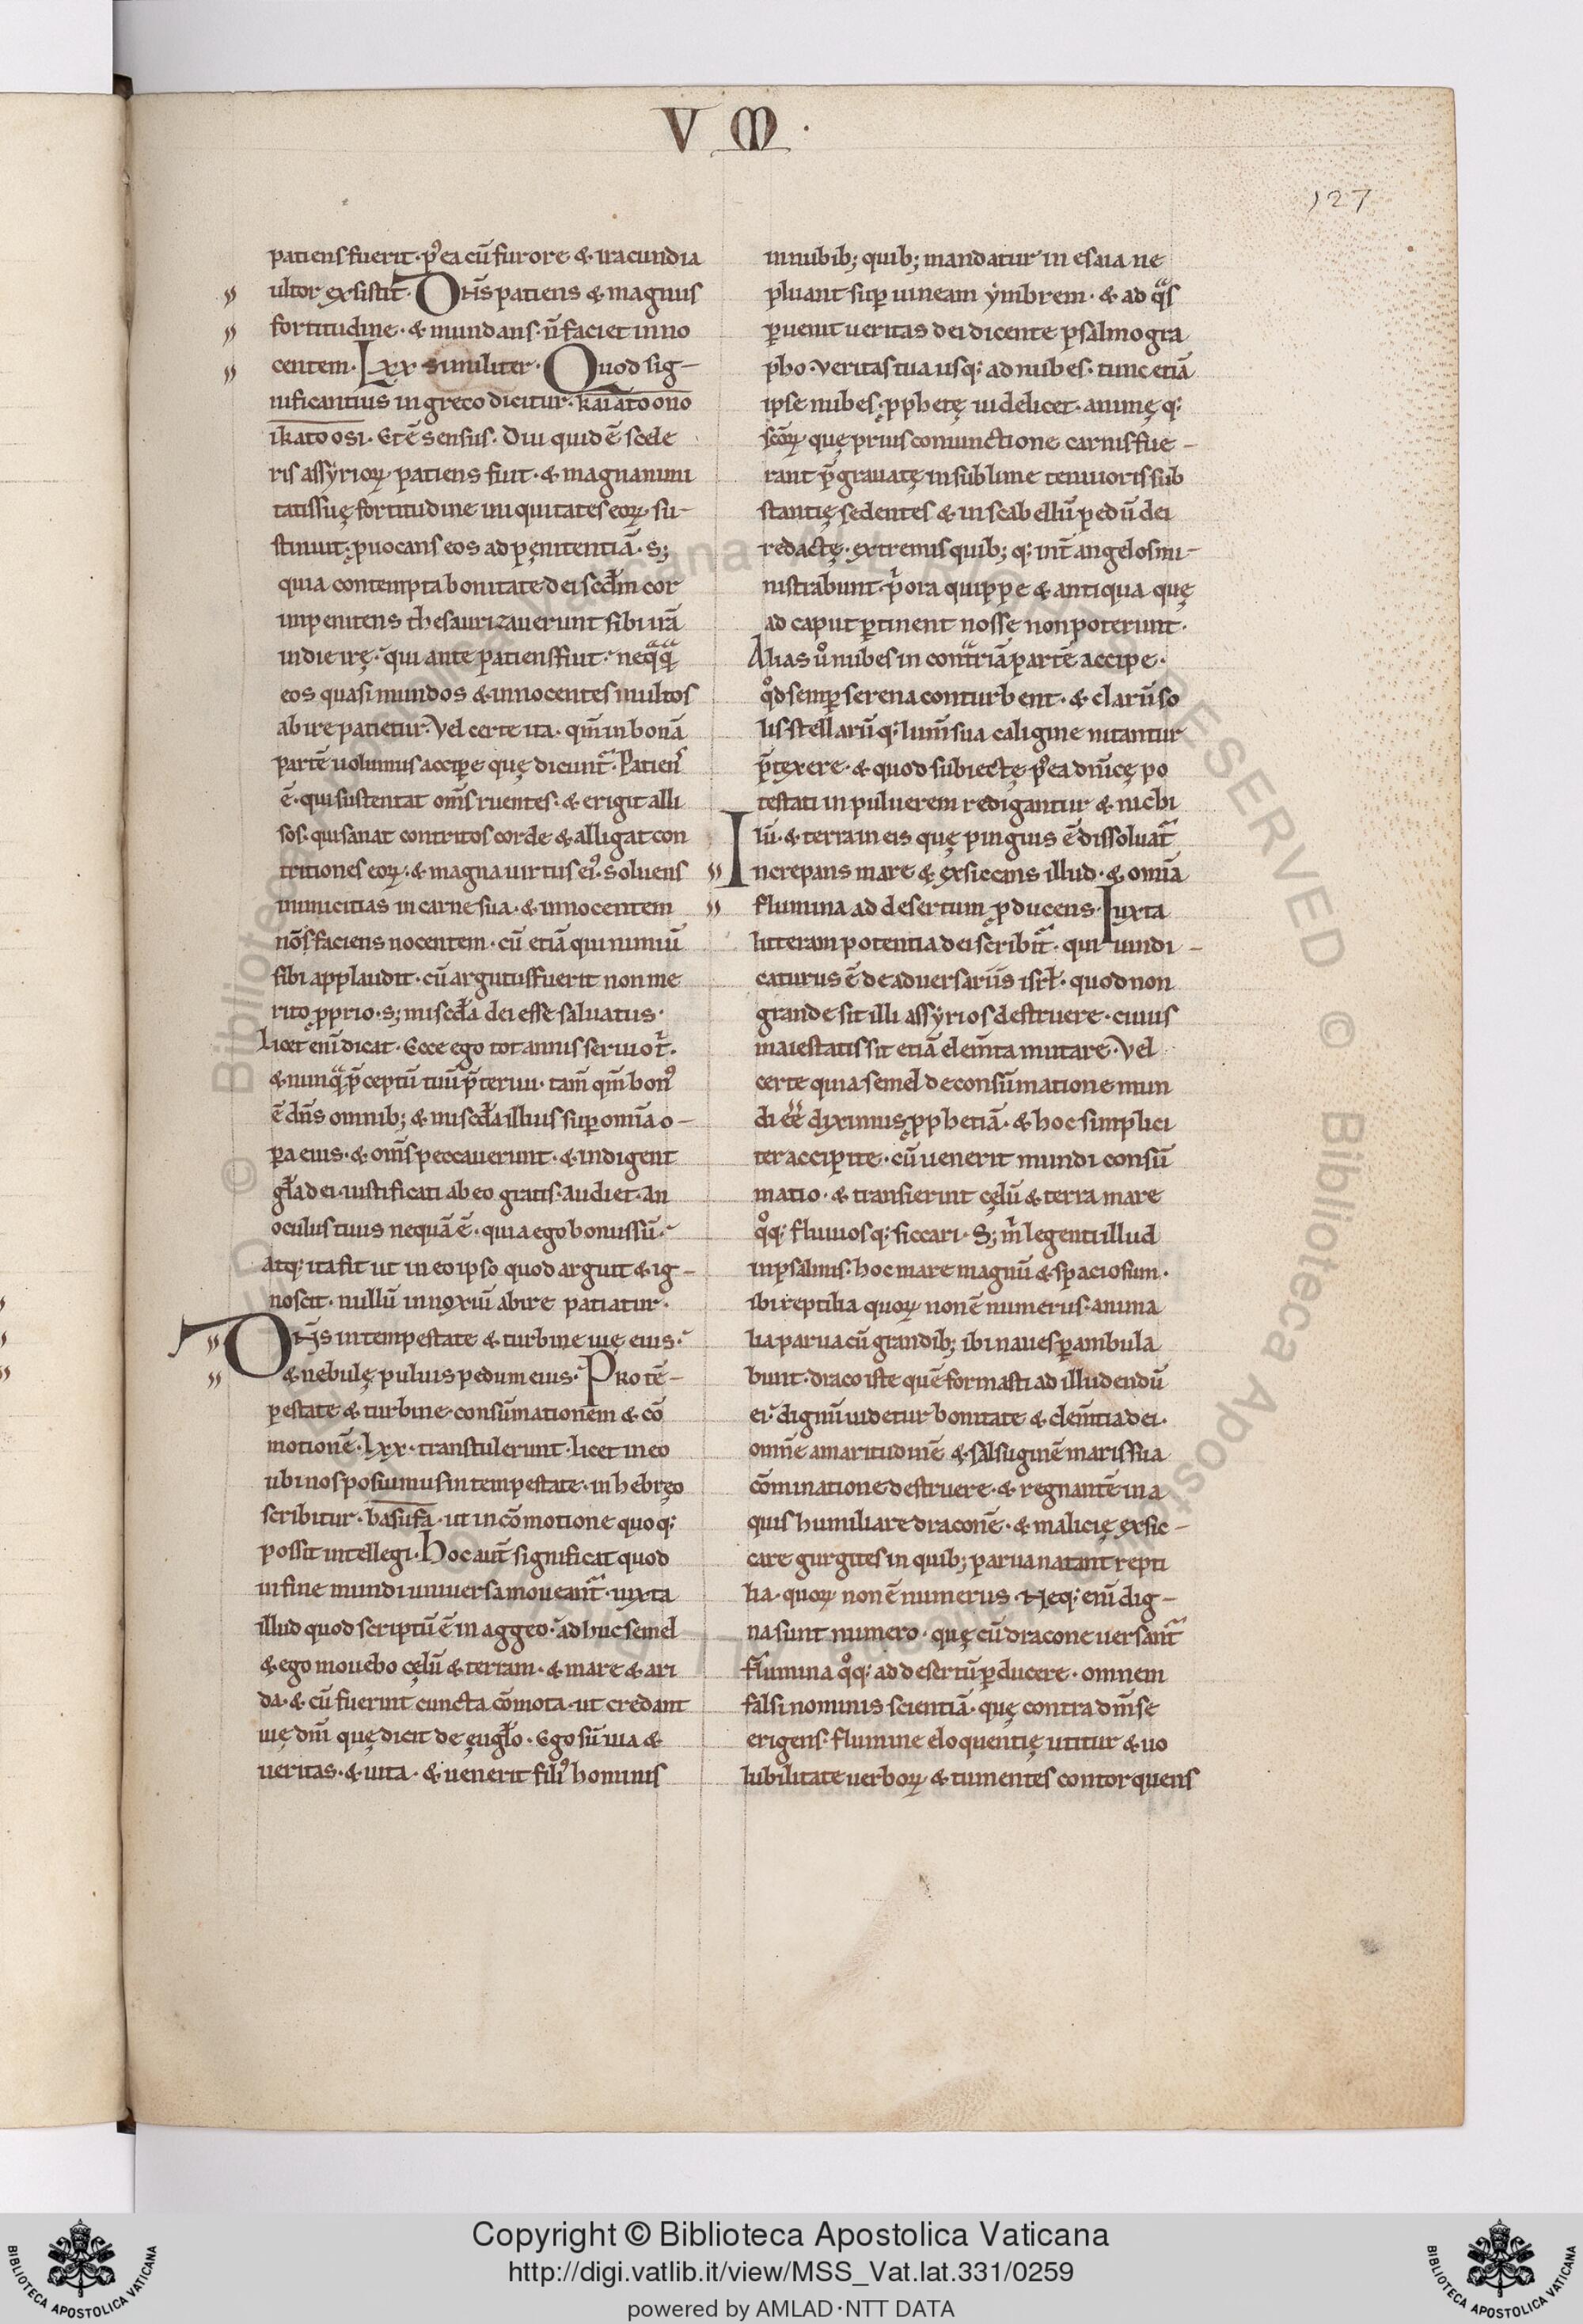 V M ·
127
patiens fuerit · p᷒ea cū furore & iracundia
ultor exsistit · DN̄S patiens & magnus
fortitudine · & mundans · n̄ faciet inno
centem · Lxx similiter · Quod sig-
nificantius in greco dicitur · kaiatoono
ikato osi · Et ē sensus · Diu quidē scele
ris assyrioꝝ patiens fuit · & magnanimi
tatis suę fortitudine iniquitates eoꝝ su-
stinuit · ꝓuocans eos ad pęnitentiā · S;
quia contempta bonitate dei scd̄m cor
inpenitens thesaurizauerunt sibi irā
in die irę · qui ante patiens fuit · neqͣqͣ
eos quasi mundos & innocentes multos
abire patietur · Vel certe ita · qm̄ in bonā
partē uolumus accipere quę dicunt᷑ · Patiens
ē · qui sustentat om̄s ruentes · & erigit alli
sos · qui sanat contritos corde & alligat con
tritiones eoꝝ · & magna uirtus ei᷒ · soluens
inimicitias in carne sua · & innocentem
nō faciens nocentem · cū etiā qui nimiū
sibi applaudit · cū argutus fuerit non me
rito ꝓprio · s; mis̄cd̄a dei esse saluatus ·
Licet eni᷒ dicat · Ecce ego tot annis seruio t ͥ ·
& nunqͣ p̄ceptū tuū p̄teriui · tam̄ qm̄ bon᷒
ē dn̄s omnib; & miscd̄a illius suꝑ omīa o-
ꝑa eius · & om̄s peccauerunt · & indigent
gl̄a dei · iustificati ab eo gratis · audiet · An
oculus tuus nequā ē · quia ego bonus sū ·
Atq: ita fit ut in eo ipso quod arguit & ig-
noscit · nullū innoxiū abire patiatur ·
DN̄S in tempestate & turbine uię eius ·
& nebulę puluis pedum eius · Pro tē-
pestate & turbine · consūmationem & cō
motionē · Lxx · transtulerunt · licet in eo
ubi nos posuimus in tempestate · in hebręo
scribitur · basufa · ut in cōmotione quoq:
possit intellegi · Hoc aut̄ significat quod
in fine mundi uniuersa moueant᷑ · iuxta
illud quod scriptū ē in aggeo · adhuc semel
& ego mouebo cęlū & terram · & mare & ari
da · & cū fuerint cuncta cōmota · ut credant
uię dn̄i quę dicit de ęugl̄o · Ego sū uia &
ueritas · & uita · & uenerit fili᷒ hominis
in nubib; quib; mandatur in esaia ne
pluant suꝑ uineam ymbrem · & ad qͣs
ꝑuenit ueritas dei dicente psalmogra
pho · Veritas tua usq: ad nubes · tunc etiā
ipse nubes · ꝓphetę uidelicet · animę q:
scōꝝ quę prius coniunctione carnis fue-
rant p̄grauatę in sublime tenuioris sub
stantię sedentes & in scabellū pedū dei
redactę · extremis quib; q: int̄ angelos mi-
nistrabunt · p ͥora quippe & antiqua quę
ad caput ꝑtinent nosse non poterunt ·
Alias u͛o nubes in contͣriā partē accipe ·
qͦd semꝑ serena conturbent · & clarū so
lis stellarūq: lum̄ sua caligine nitantur
p̄texere · & quod subiectę p᷒ea dn̄icę po
testati in puluerem redigantur & nichi
lū · & terra in eis quę pinguis ē dissoluat᷑
Increpans mare & exsiccans illud · & omīa
flumina ad desertum ꝓducens · Iuxta
litteram potentia dei scribit᷑ · qui uindi-
caturus ē de aduersariis isrl̄ · quod non
grande sit illi assyrios destruere · cuius
maiestatis sit etiā elem̄ta mutare · Vel
certe quia semel de consūmatione mun
di ee᷑ diximus ꝓphetiā · & hoc simplici
ter accipite · cū uenerit mundi consū
matio · & transierint cęlū & terra mare
qͦq: fluuiosq: siccari · S; m ͥ legenti illud
in psalmis · hoc mare magnū & spaciosum ·
ibi reptilia quoꝝ non ē numerus · anima
lia parua cū grandib; ibi naues ꝑambula
bunt · draco iste quē formasti ad illudendū
ei · dignū uidetur bonitate & clem̄tia dei ·
omnē amaritudinē & salsuginē maris sua
cōminatione destruere · & regnantē in a
quis humiliare draconē · & malicię exsic-
care gurgites in quib; parua natant repti
lia · quoꝝ non ē numerus · Neq: eni᷒ dig-
na sunt numero · quę cū dracone uersant᷑
flumina qͦq: ad desertū ꝑducere · omnem
falsi nominis scientiā · quę contra dm̄ se
erigens · flumine eloquentię utitur & uo
lubilitate uerboꝝ & tumentes contorquens
Copyright © Biblioteca Apostolica Vaticana
http://digi.vatlib.it/view/MSS_Vat.lat.331/0259
powered by AMLAD·NTT DATA